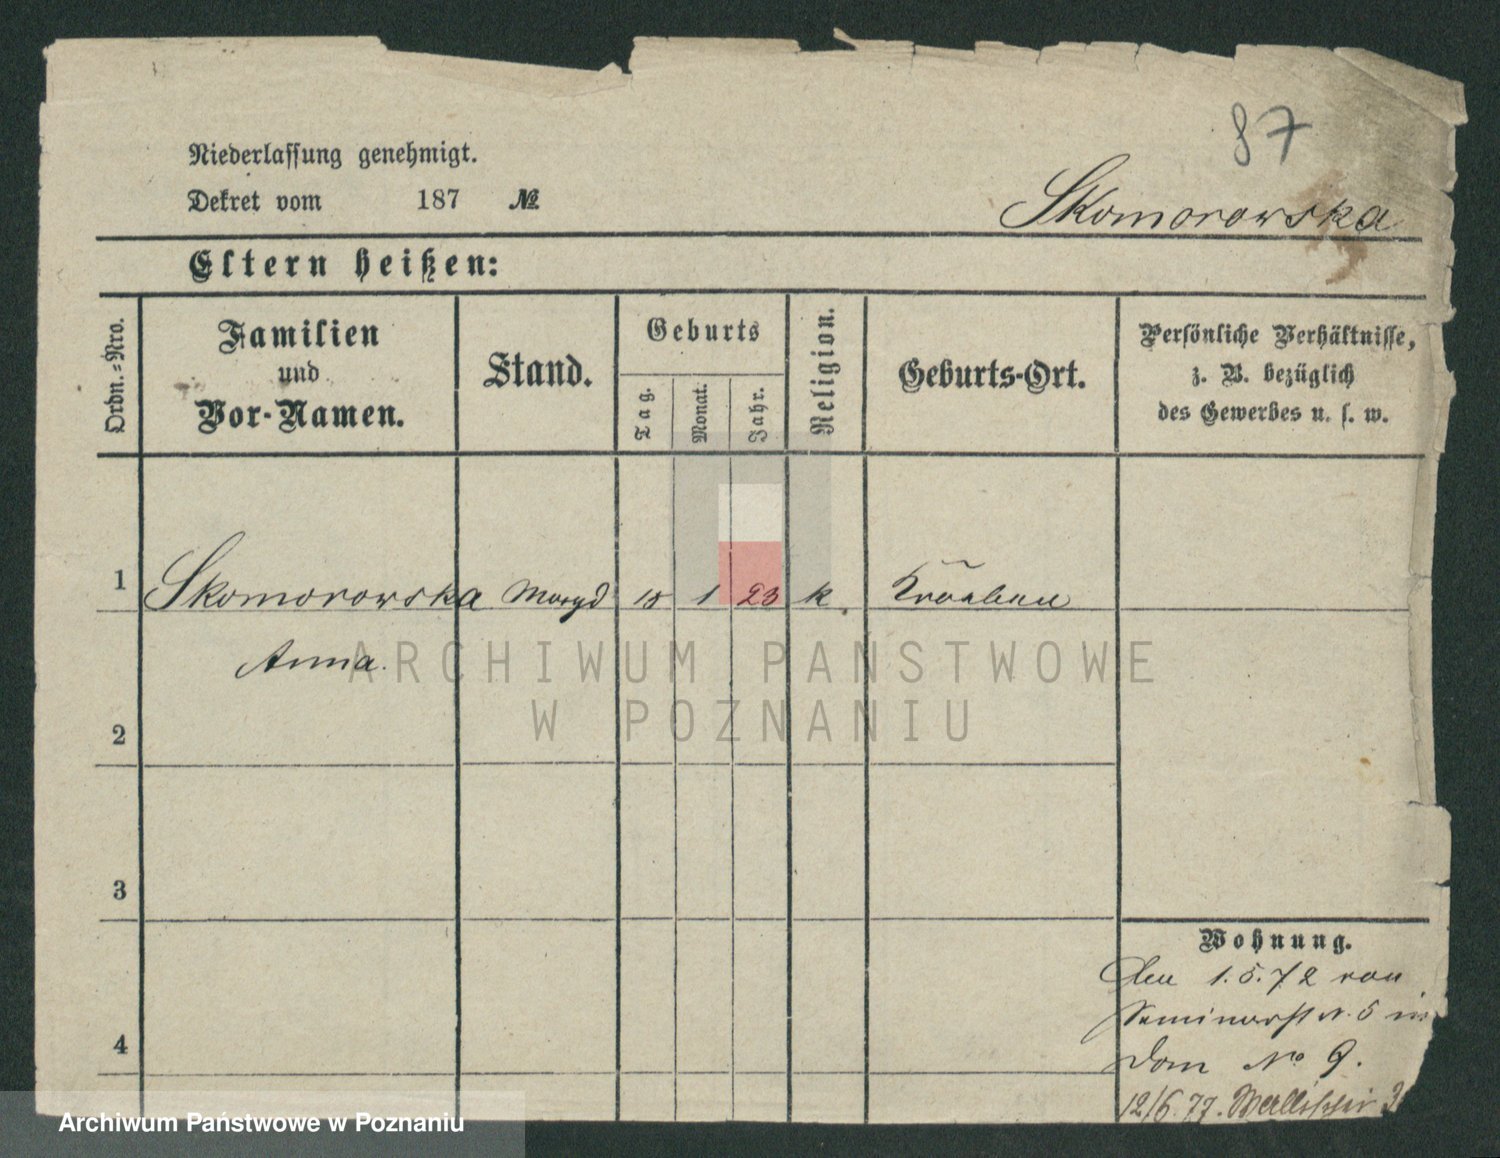 87
Niederlassung genehmigt.
Dekret vom 187 №
Skomorowska
Eltern heißen:
Ordn.-Nro.
Familien
und
Vor-Namen.
Stand.
Geburts
Tag.
Monat.
Jahr.
Religion.
Geburts-Ort.
Persönliche Verhältnisse,
z. B. bezüglich
des Gewerbes u. s. w.
1 Skomorowska 1 23 k.
Anna.
ARCHIWUM PAŃSTWOWE
W POZNANIU
2
3
Wohnung.
Den 1.5.72 von
Seminarst N. 5 in
4
Dom No 9.
12/6.77.
Archiwum Państwowe w Poznaniu